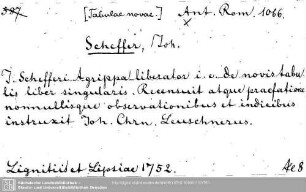 387 [Tabulae novae.] Ant. Rom. 1066.
x
Scheffer, Joh.
J. Schefferi Agrippa liberator i. e. de novis tabu
lis liber singularis. Recensuit atque praefatione
nonnullisque observationibus et indicibus
instruxit Joh. Chrn. Leuschnerus.
Lignitii et Lipsiae 1752. 8